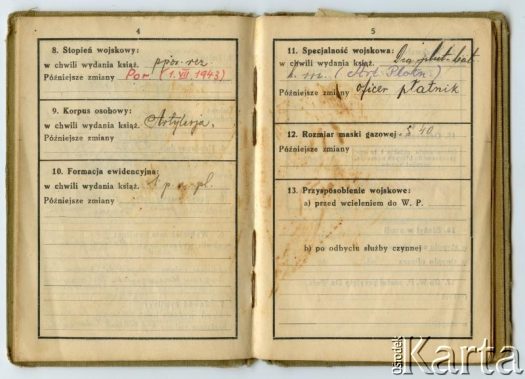 4
8. Stopień wojskowy:
w chwili wydania książ. ppor. rez
Późniejsze zmiany Por. (1.VII.1943)
9. Korpus osobowy:
w chwili wydania książ. Artylerja.
Późniejsze zmiany
10. Formacja ewidencyjna:
w chwili wydania książ.
Późniejsze zmiany
5
11. Specjalność wojskowa:
w chwili wydania książ.
Późniejsze zmiany oficer płatnik
12. Rozmiar maski gazowej 40
Późniejsze zmiany
13. Przysposobienie wojskowe:
a) przed wcieleniem do W. P.
b) po odbyciu służby czynnej
ośrodek
Karta